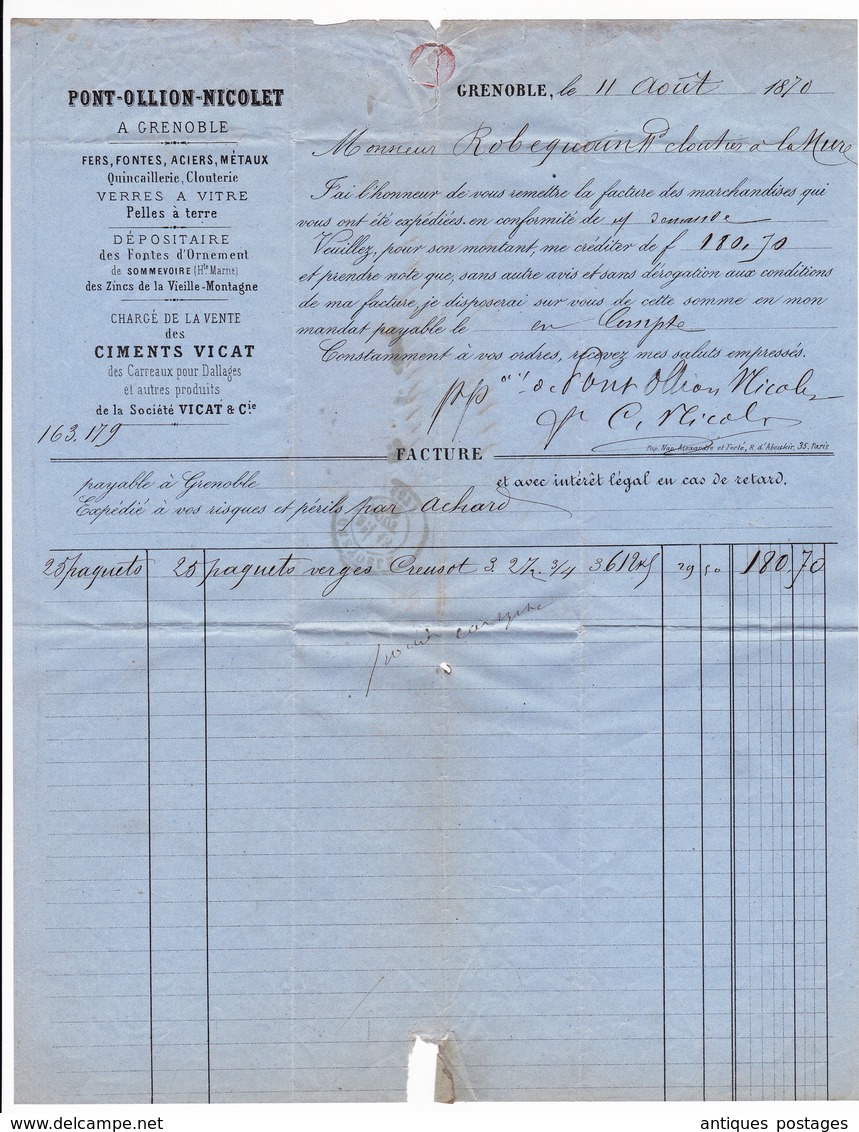 PONT-OLLION-NICOLET
A GRENOBLE
FERS, FONTES, ACIERS, MÉTAUX
Quincaillerie, Clouterie
VERRES A VITRE
Pelles à terre
DÉPOSITAIRE
des Fontes d'Ornement
de SOMMEVOIRE (Hte Marne)
des Zincs de la Vieille-Montagne
CHARGÉ DE LA VENTE
des
CIMENTS VICAT
des Carreaux pour Dallages
et autres produits
de la Société VICAT & Cie
163.179
GRENOBLE, le 11 Août 1870
Monsieur Robequain cloutier à la Mure
J'ai l'honneur de vous remettre la facture des marchandises qui
vous ont été expédiées en conformité de demande
Veuillez, pour son montant, me créditer de f 180.70
et prendre note que, sans autre avis et sans dérogation aux conditions
de ma facture, je disposerai sur vous de cette somme en mon
mandat payable le en Compte
Constamment à vos ordres, recevez mes saluts empressés.
pp de Pont Ollion Nicolet
C. Nicolet
Pap. Nap. Alexandre et Ferté, R. d'Aboukir, 35. Paris
FACTURE
payable à Grenoble et avec intérêt légal en cas de retard.
Expédié à vos risques et périls par Achard
25 paquets 25 paquets verges Creusot 3. 27 3/4 29 50 180.70
antiques postages